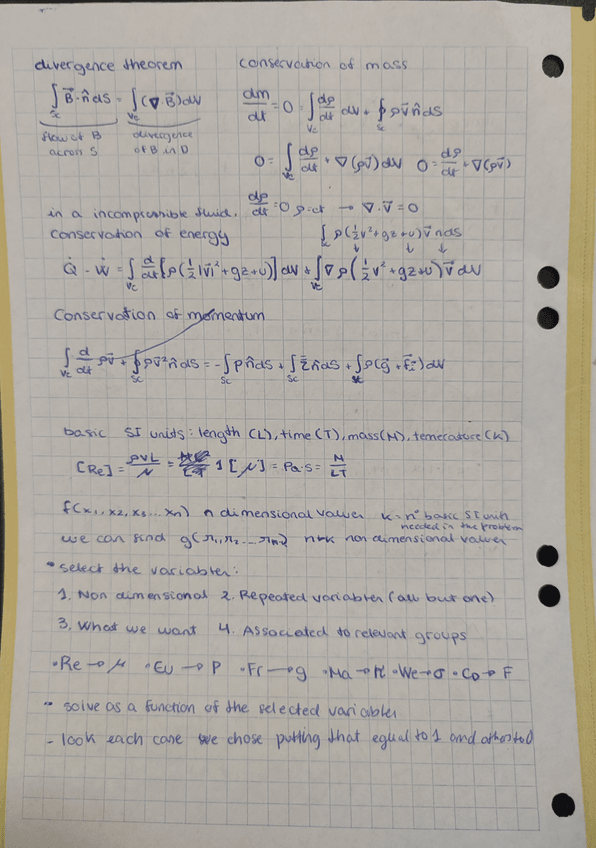 divergence theorem
∫_Sc B⃗·n̂ dS = ∫_Vc (∇B⃗) dV
flow of B across S
divergence of B in D
conservation of mass
dm/dt = 0 = ∫_Vc dρ/dt dV + ∮_Sc ρv⃗ n̂ dS
0 = ∫_Vc dρ/dt + ∇(ρv⃗) dV 0 = dρ/dt + ∇(ρv⃗)
in a incompressible fluid. dρ/dt = 0 ρ=ct → ∇·v⃗ = 0
conservation of energy
∫_Sc ρ(½v²+gz+u)v⃗ n dS
↓ ↓ ↓
Q̇ - Ẇ = ∫_Vc d/dt[ρ(½|v⃗|²+gz+u)] dV + ∫_Vc ∇ρ(½v²+gz+u)v⃗ dV
Conservation of momentum
∫_Vc d/dt ρv⃗ + ∮_Sc ρv⃗² n̂ dS = -∫_Sc P n̂ dS + ∫_Sc n̂ dS + ∫ ρ(g⃗ + ) dV
basic SI units: length (L), time (T), mass (M), temerature (K)
[Re] = ρVL/μ = 1 [μ] = Pa·s = M/LT
f(x₁, x₂, x₃ ... xn) n dimensional values k = nº basic SI units
needed in the problem
we can find g(π₁, π₂ ... ) n-k non dimensional values
• select the variables:
1. Non dimensional 2. Repeated variables (all but one)
3. What we want 4. Associated to relevant groups
• Re → μ • Eu → P • Fr → g • Ma → • We → σ • CD → F
• solve as a function of the selected variables
- look each case we chose putting that equal to 1 and others to 0